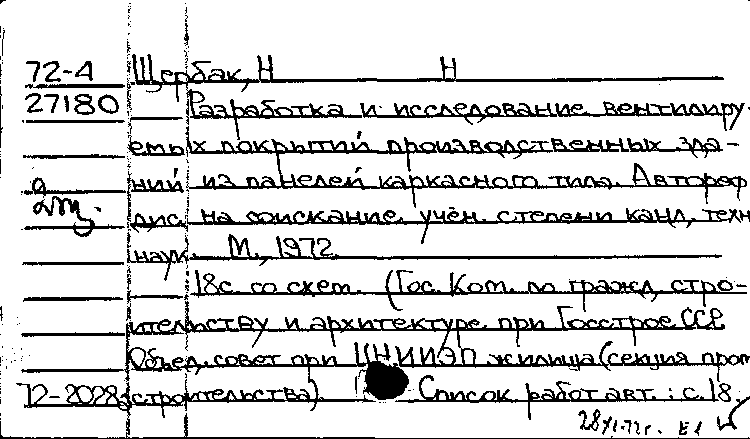 72-4 Щербак, Н Н
27180 Разработка и исследование вентилиру-
емых покрытий производственных зда-
ний из панелей каркасного типа. Автореф
дис. на соискание учён. степени канд. техн
наук. М., 1972.
18с. со схем. (Гос. Ком. по гражд. стро-
ительству и архитектуре при Госстрое СССР
Объед. совет при ЦНИИЭП жилища (секция пром
72-2028 строительства). Список работ авт.: с. 18.
28/XI-72г. Е1